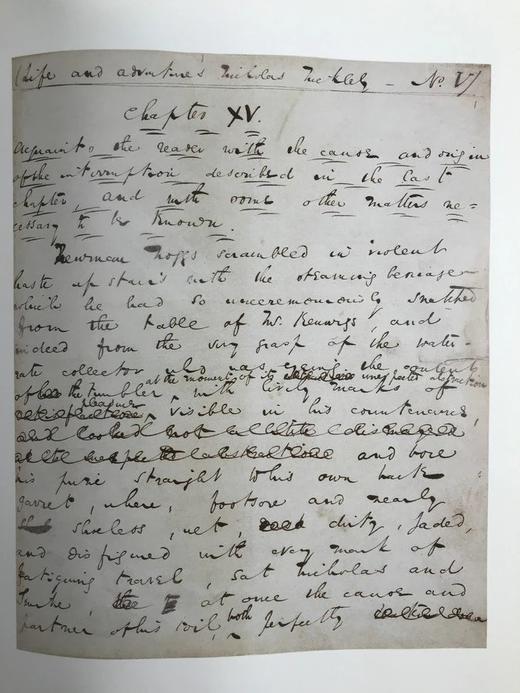 (Life and adventures Nicholas Nickleby – No. V)
Chapter XV.
Acquaints the reader with the cause and origin
of the interruption described in the last
chapter, and with some other matters ne=
cessary to be known.
Newman Noggs scrambled in violent
haste up stairs with the steaming beverage
which he had so unceremoniously snatched
from the table of Mr. Kenwigs, and
indeed from the very grasp of the water-
rate collector who was eyeing the contents
of the tumbler, at the moment of its unexpected abstraction with lively marks of
pleasure visible in his countenance,
and looked not a little dismayed
and bore
his prize straight to his own back
garret, where, footsore and nearly
shoeless, wet, dirty, jaded,
and disfigured with every mark of
fatiguing travel, sat Nicholas and
Smike, at once the cause and
partner of his toil, both perfectly